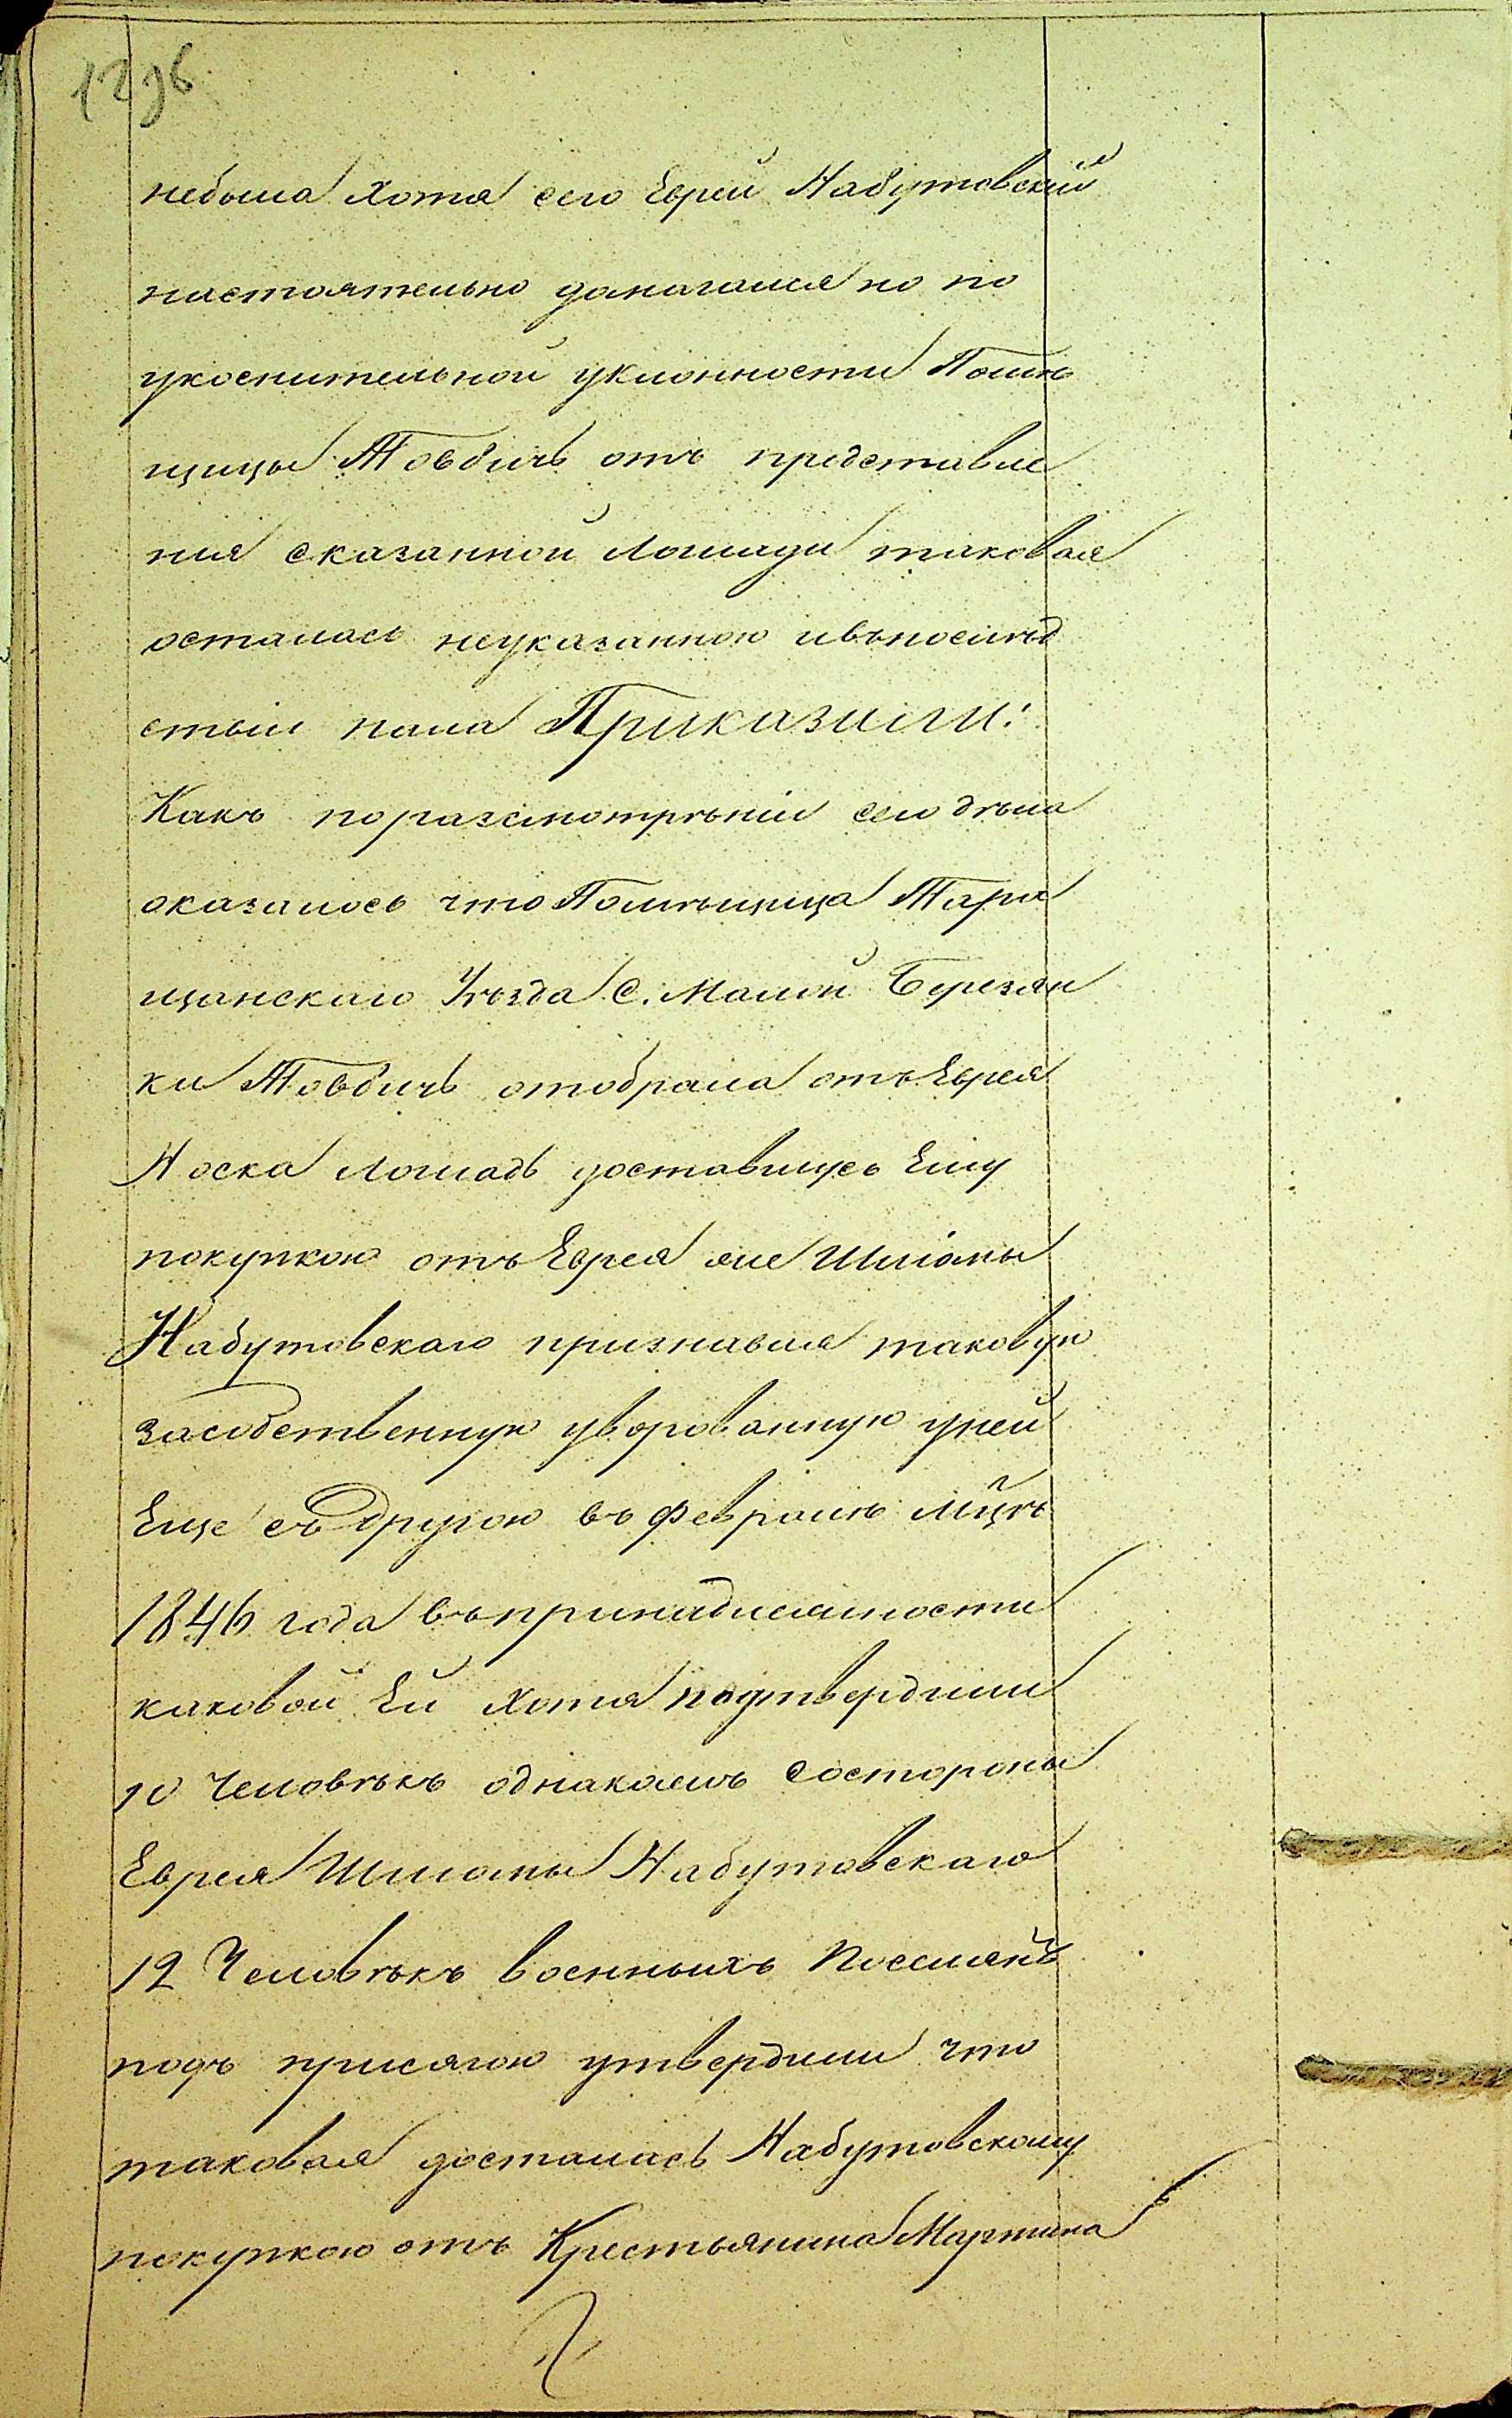 1296
небыла хотя сего Еврей Набутовскій
настоятельно домогался но по
укоснительной уклонности Помѣ
щицы Товбичь отъ представле
нія сказанной лошади таковая
осталась неуказанною ивъпослѣд
ствіи пала Приказали:
Какъ поразсмотрѣніи сего дѣла
оказалось что Помѣщица Тара
щанскаго Уѣзда С. Малой Березян
ки Товбичь отобрала отъ Еврея
Носка лошадь доставшуюсь Ему
покупкою отъ Еврея же Шліомы
Набутовскаго признавая таковую
засобственную уворованную уней
Еще съ другою въ Февралѣ мцѣ
1846 года въпринадлежности
каковой Ей хотя подтвердили
10 Человѣкъ однакожъ состороны
Еврея Шліомы Набутовскаго
12 Человѣкъ военныхъ Поселянъ
подъ присягою утвердили что
таковая досталась Набутовскому
покупкою отъ Крестьянина Мартина